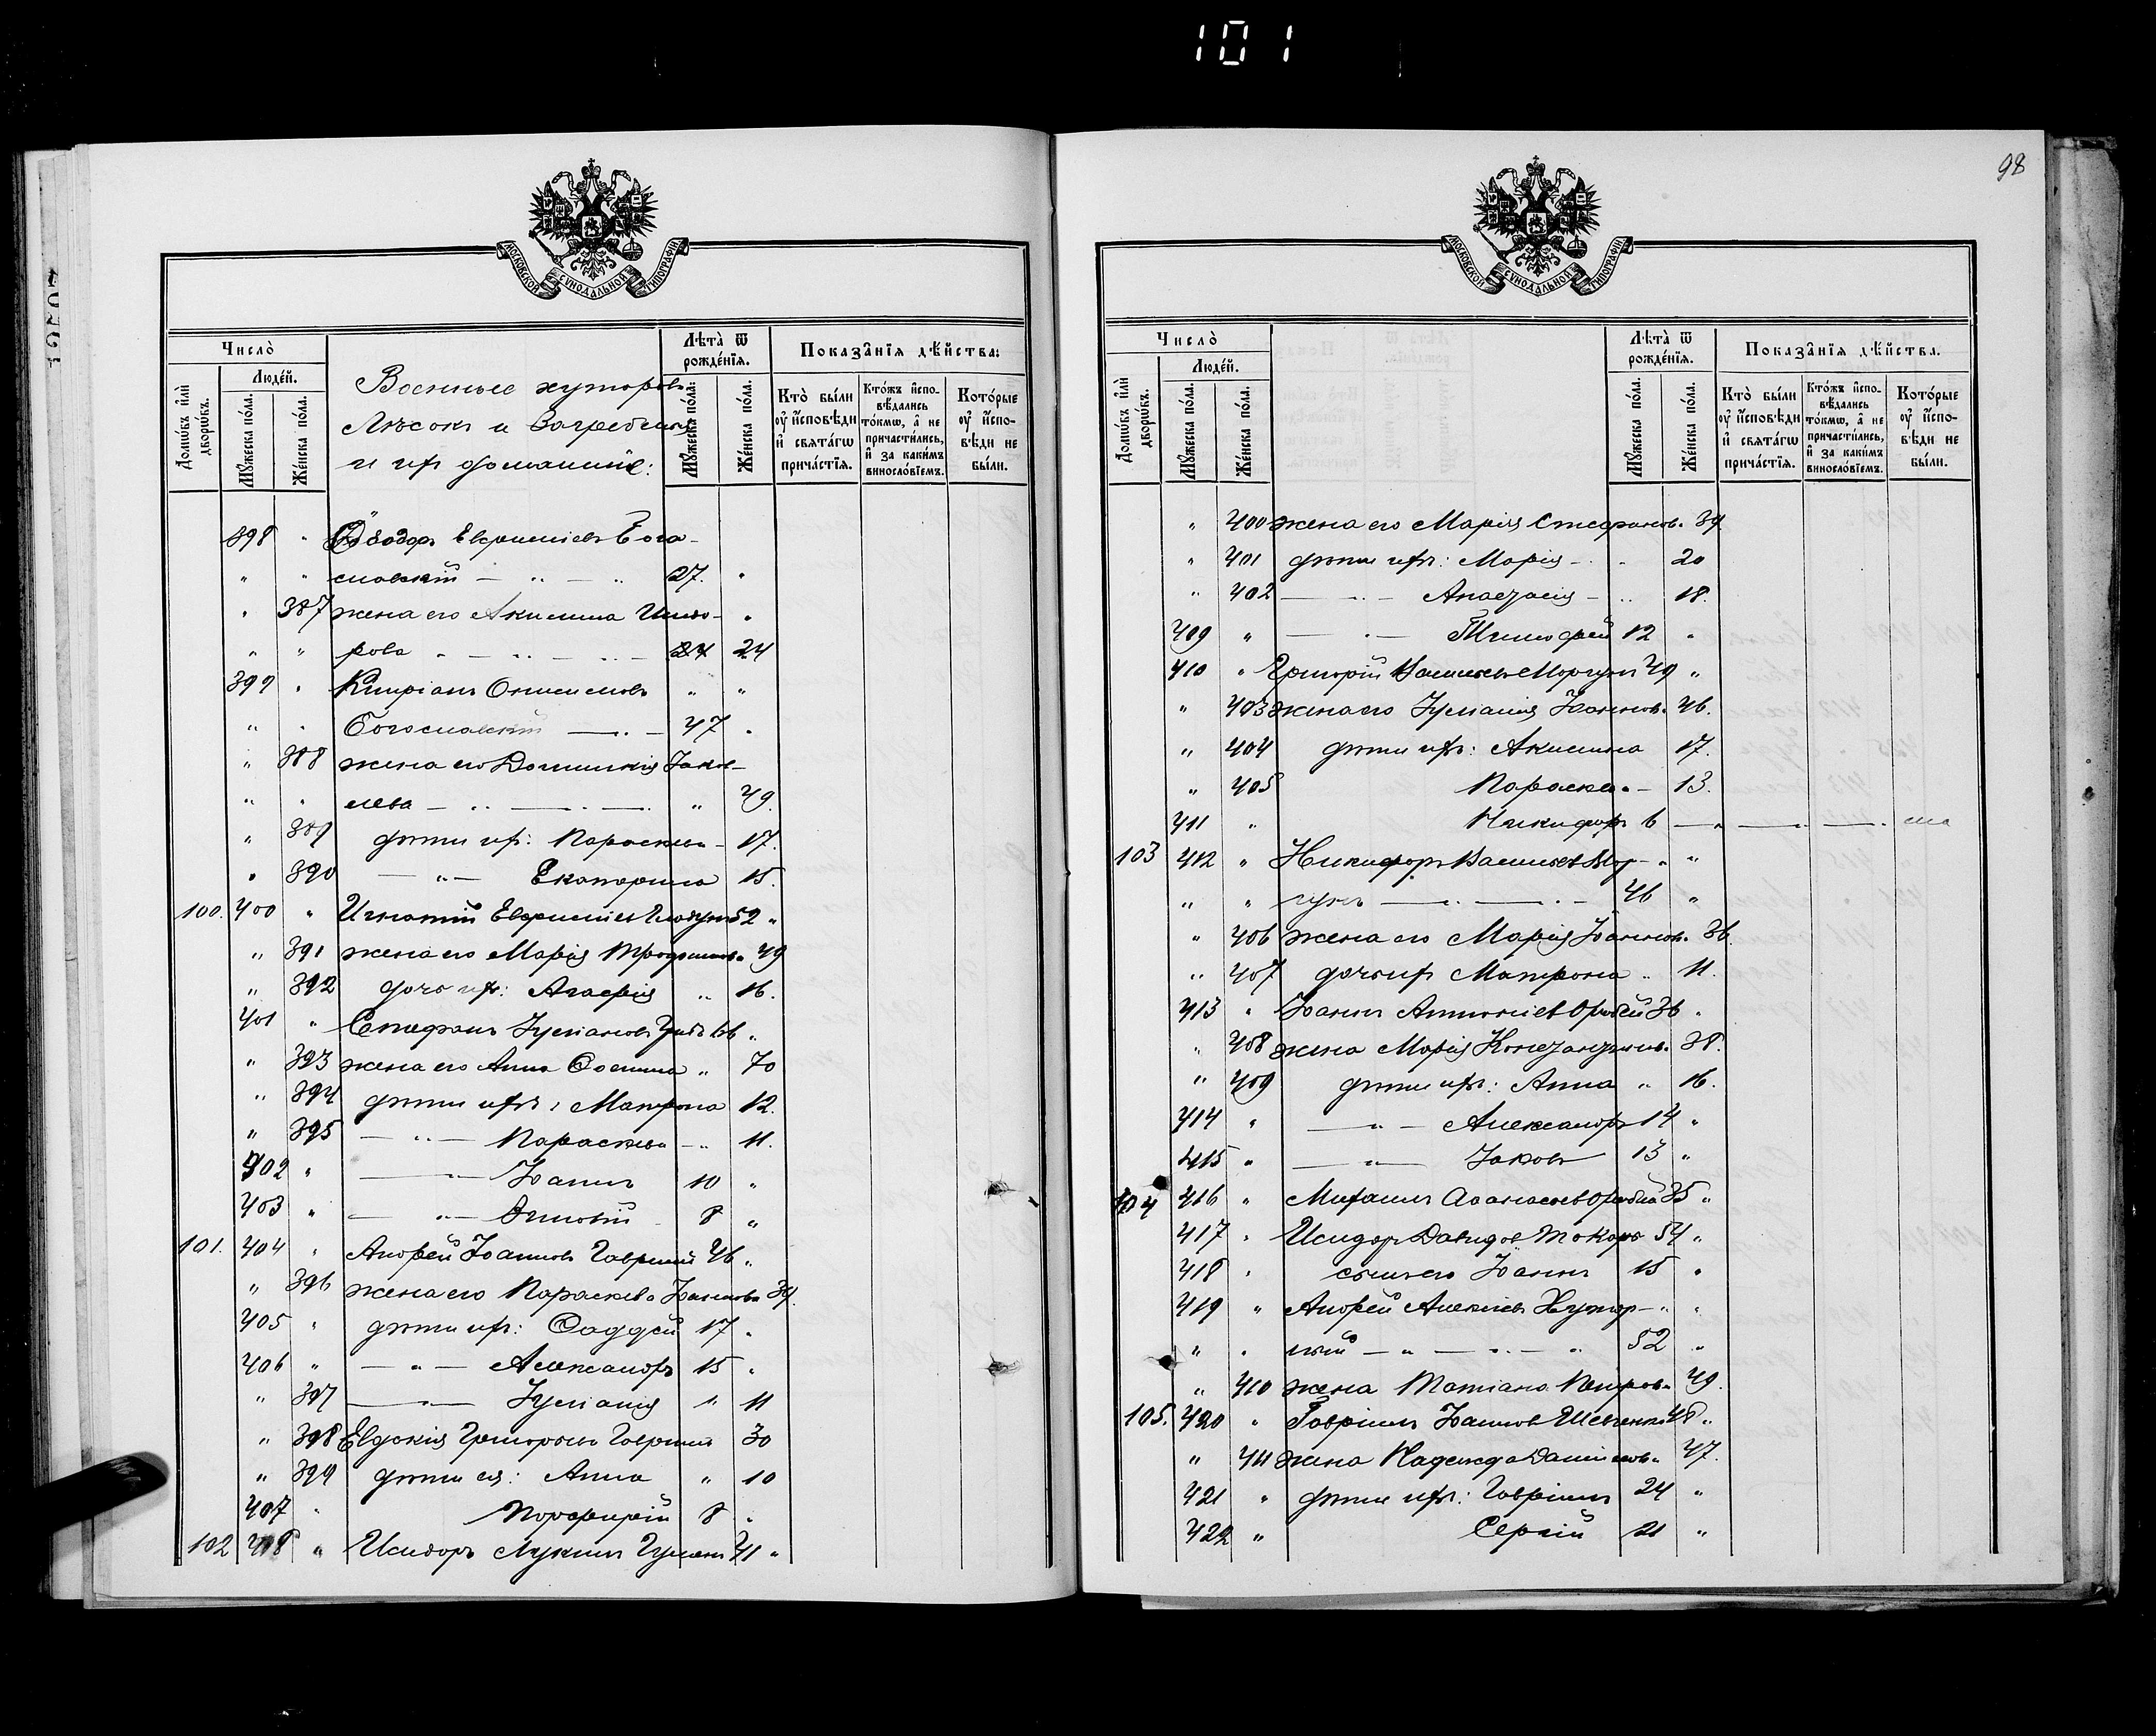 101
98
МОСКОВСКОЙ СУНОДАЛЬНОЙ ТИПОГРАФІИ
Число̀
Люде́й.
Домѡ́въ и҆лѝ дворѡ́въ.
Мꙋ́жеска по́ла.
Же́нска по́ла.
Военные хутора
Лѣсокъ и
и ихъ домашніе:
Лѣта̀ ѿ рожде́нїѧ.
Мꙋ́жеска по́ла.
Же́нска по́ла.
Показа̑нїѧ дѣ́йства:
Кто̀ бы́ли ᲂу҆ и҆́сповѣди и҆ свѧта́гѡ прича́стїѧ.
Кто́жъ и҆спо-вѣ́дались то́кмѡ, а҆ не причасти́лись, и҆ за каки́мъ винослові́емъ.
Кото́рые ᲂу҆ и҆́спо-вѣди не бы́ли.
398 " Ѳеодоръ Евфиміевъ Бого-
" " словскій — " — " 27. "
" 387 жена его Акилина Исидо- "
" " рова " — " — " — 24 24
399 " Кипріанъ " "
" " Богословскій — " — 47 "
" 388 жена его Домникія Іаков-
" " лева — " — " — " 49.
" 389 дѣти ихъ: Параскева — 17.
" 390 — " — Екатерина 15.
100. 400 " Игнатій Евфиміевъ 52 "
" 391 жена его Марія Трофимова 49
" 392 дочь ихъ: Агафія " 16.
401 " Стефанъ Іуліановъ "
" 393 жена его Анна " 70
" 394 дѣти ихъ: Матрона 12.
" 395 — " — Параскева — " 11.
402 " — " — Іоаннъ 10 "
403 " — " — Зиновій 8 "
101. 404 " Андрей Іоанновъ 46 "
" 396 жена его Параскева Іоаннова 39.
405 " дѣти ихъ: Ѳаддей 17 "
406 " — " — Александръ 15 "
" 397 — " — Іуліанія " 11
" 398 Евдокія Григорьева 30
" 399 дѣти ея: Анна " 10
407 " Порфирій 8 "
102 408 " Исидоръ Лукинъ 41 "
Число̀
Люде́й.
Домѡ́въ и҆лѝ дворѡ́въ.
Мꙋ́жеска по́ла.
Же́нска по́ла.
Лѣта̀ ѿ рожде́нїѧ.
Мꙋ́жеска по́ла.
Же́нска по́ла.
Показа̑нїѧ дѣ́йства.
Кто̀ бы́ли ᲂу҆ и҆́сповѣди и҆ свѧта́гѡ прича́стїѧ.
Кто́жъ и҆спо-вѣ́дались то́кмѡ, а҆ не причасти́лись, и҆ за каки́мъ винослові́емъ.
Кото́рые ᲂу҆ и҆́спо-вѣди не бы́ли.
" 400 жена его Марія Стефанов. 39
" 401 дѣти ихъ: Марія — " 20
" 402 — " — Анастасія — " 18.
409 " — " — Тимофей 12 "
410 " Григорій Васильевъ Моргунъ 49 "
" 403 жена его Іуліанія Іоаннов. 46.
" 404 дѣти ихъ: Акилина 17.
" 405 Параскева — 13.
411 " Никифоръ 6 — " — " — "
103 412 " Никифоръ Васильевъ Мор- " "
" " гунъ — " — " — 46 "
" 406 жена его Марія Іоаннов. 36.
" 407 дочь ихъ Матрона " 11.
413 " Іоаннъ Антоніевъ 36 "
" 408 жена Марія Константинов. 38.
" 409 дѣти ихъ: Анна " 16.
414 " — " — Александръ 14 "
415 " — " — Іаковъ 13 "
104 416 " Митрофанъ Аѳанасьевъ 35 "
417 " Исидоръ Давидовъ Токарь 54 "
418 " сынъ его Іоаннъ 15 "
419 " Андрей Алексіевъ Хутор- " "
" " ный — " — " — " 52 "
" 410 жена Татіана Петрова 49.
105. 420 " Гавріилъ Іоанновъ Шевченко 48 "
" 411 жена Надежда Даниилов. 47.
421 " дѣти ихъ: Гавріилъ 24 "
422 " Сергій 21 "